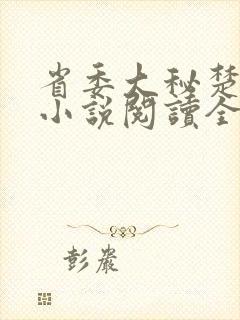 省委大秘楚
小說閱讀全
彭嚴